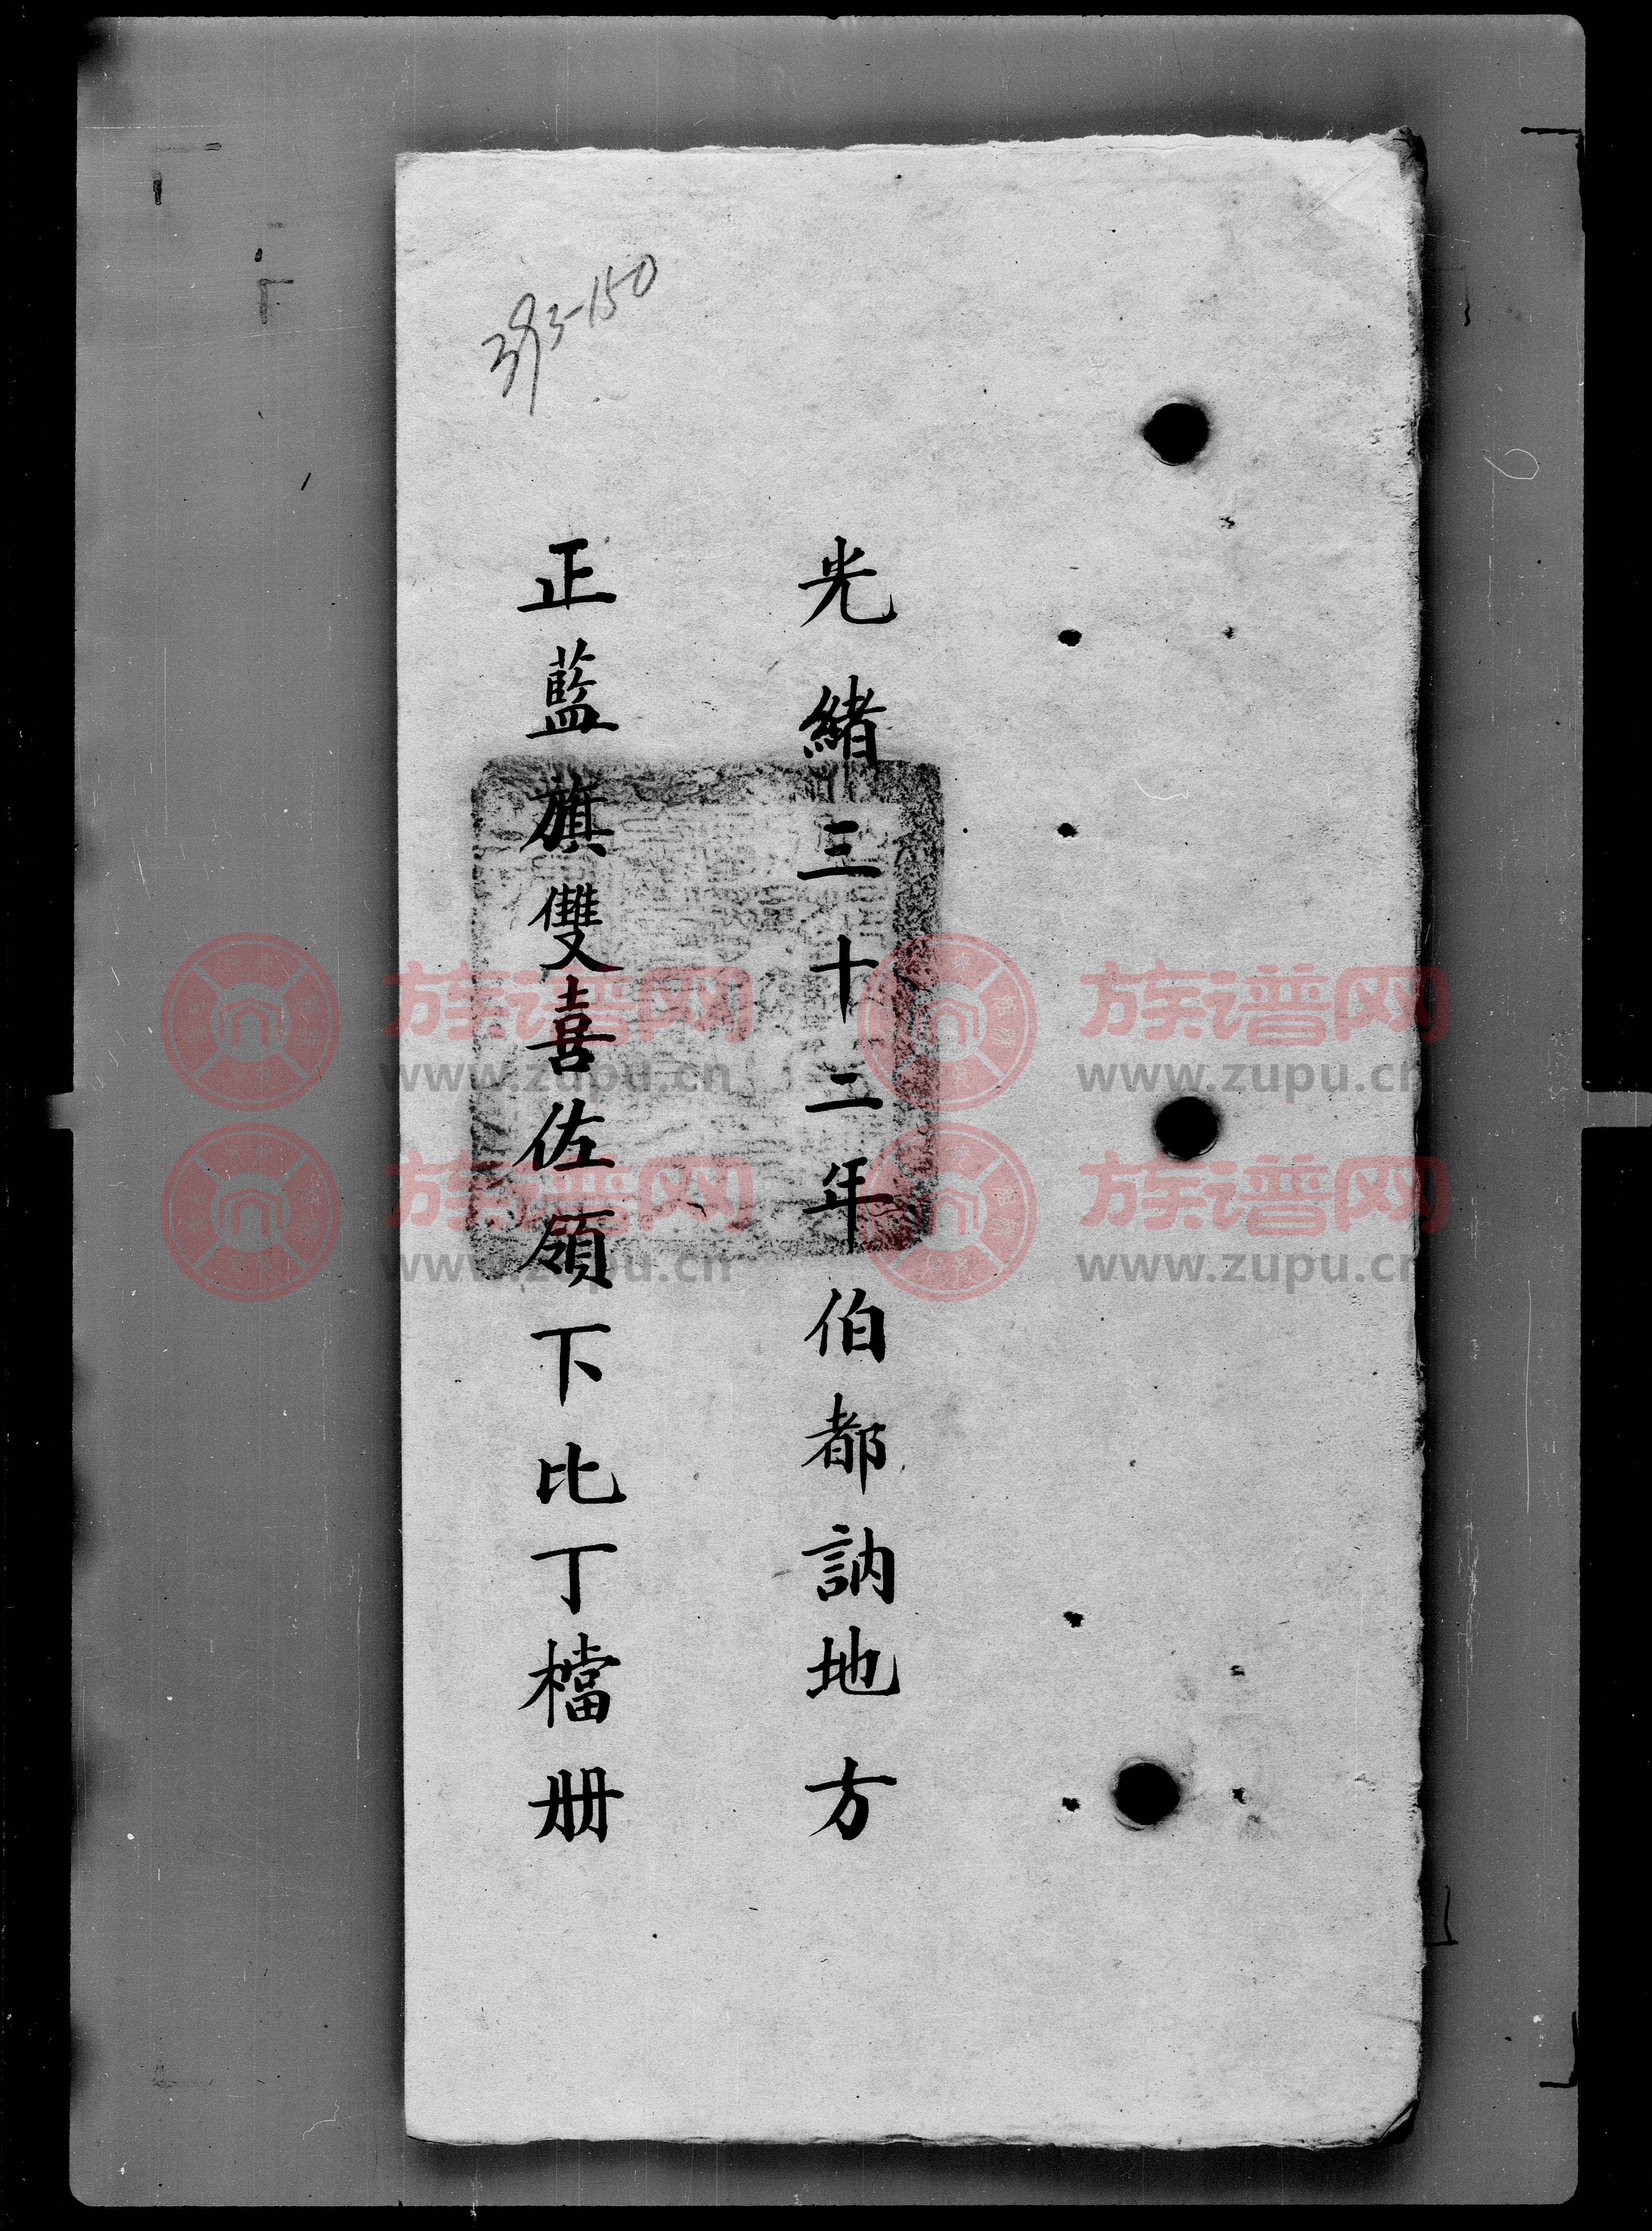 光緒三十二年伯都訥地方
正藍旗雙喜佐領下比丁檔册
393-150
族谱网
www.zupu.cn
族谱网
www.zupu.cn
族谱网
www.zupu.cn
族谱网
www.zupu.cn